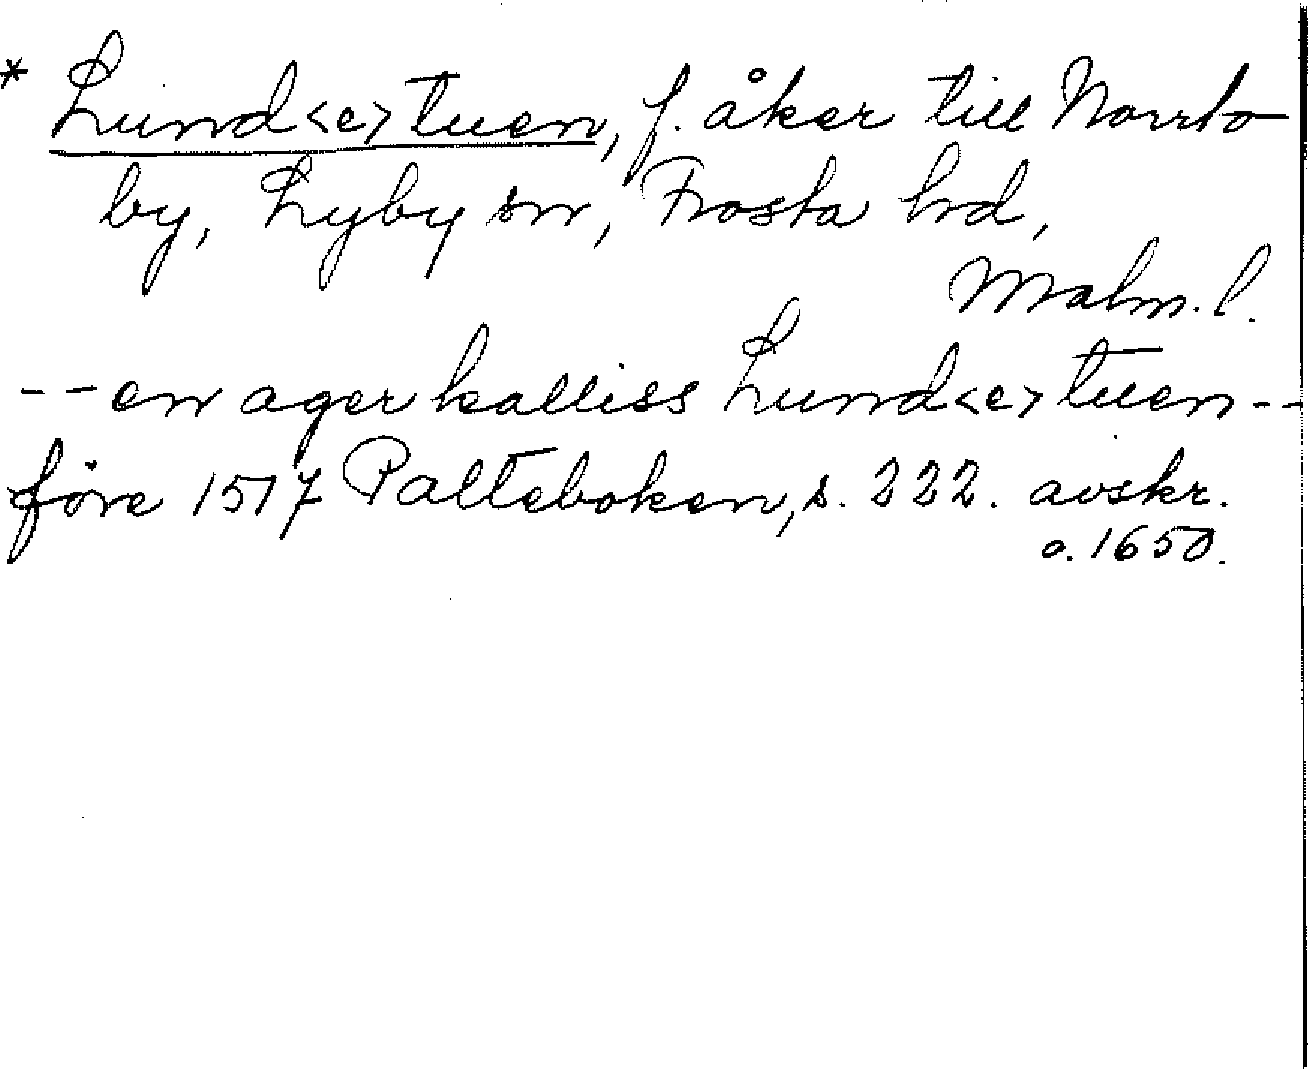 * Lund<e>tuen, f. åker till Norrto
by, Lyby sn, Frosta hd,
Malm.l.
-- en ager kalliss Lund<e>tuen --
före 1517 Palteboken, s. 222. avskr.
o. 1650.